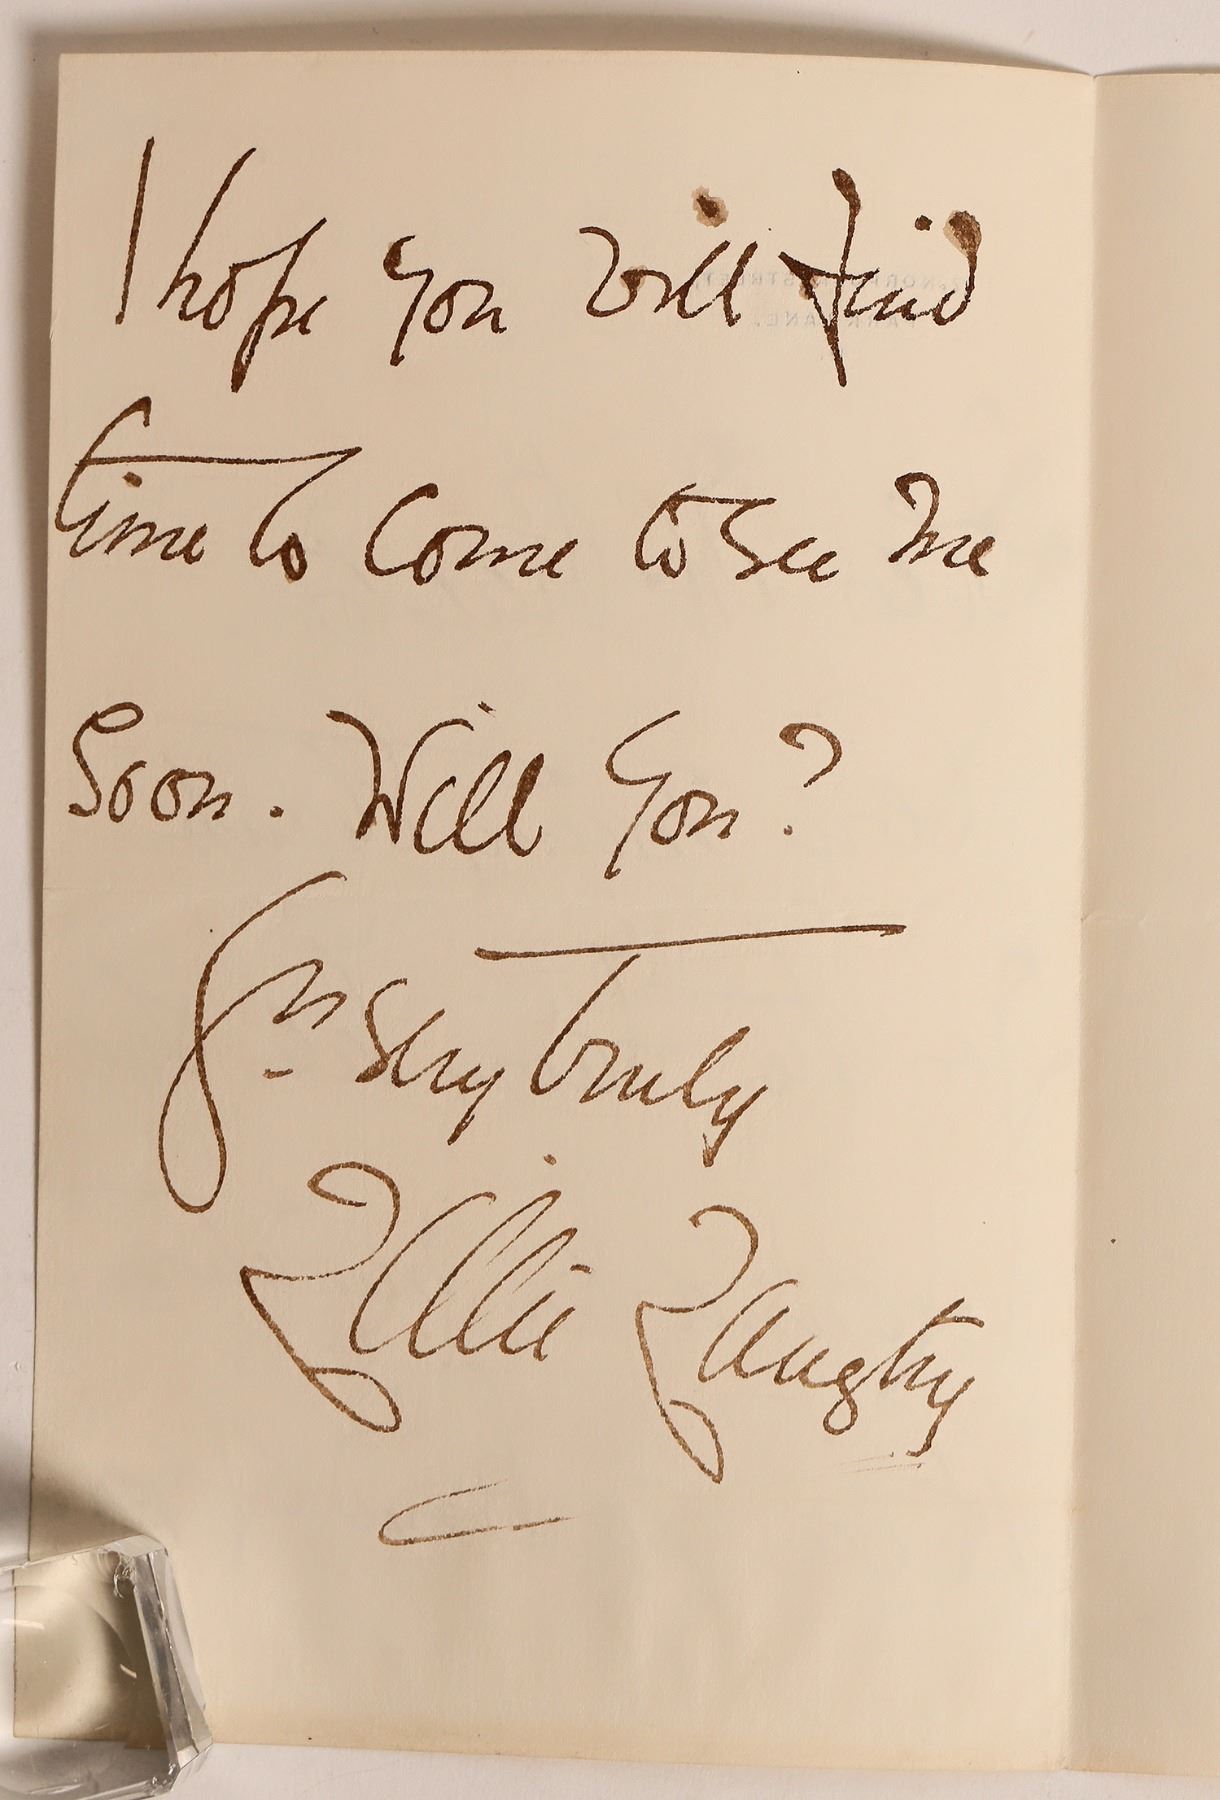 I hope you will find
time to come to see me
Soon. Will you?
Yrs very truly
Lillie Langtry